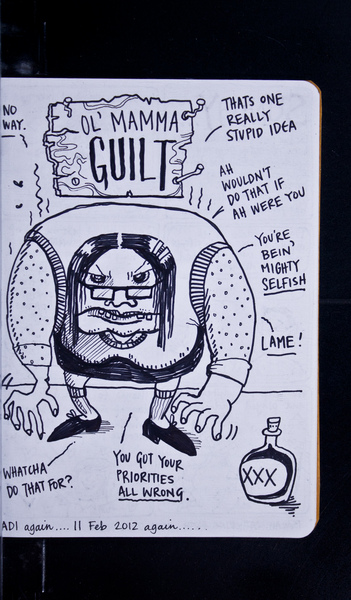 NO
WAY.
OL' MAMMA
GUILT
THATS ONE
REALLY
STUPID IDEA
AH
WOULDN'T
DO THAT IF
AH WERE YOU
YOU'RE
BEIN'
MIGHTY
SELFISH
LAME!
WHATCHA
DO THAT FOR?
YOU GOT YOUR
PRIORITIES
ALL WRONG.
XXX
ADI again.... 11 Feb 2012 again......